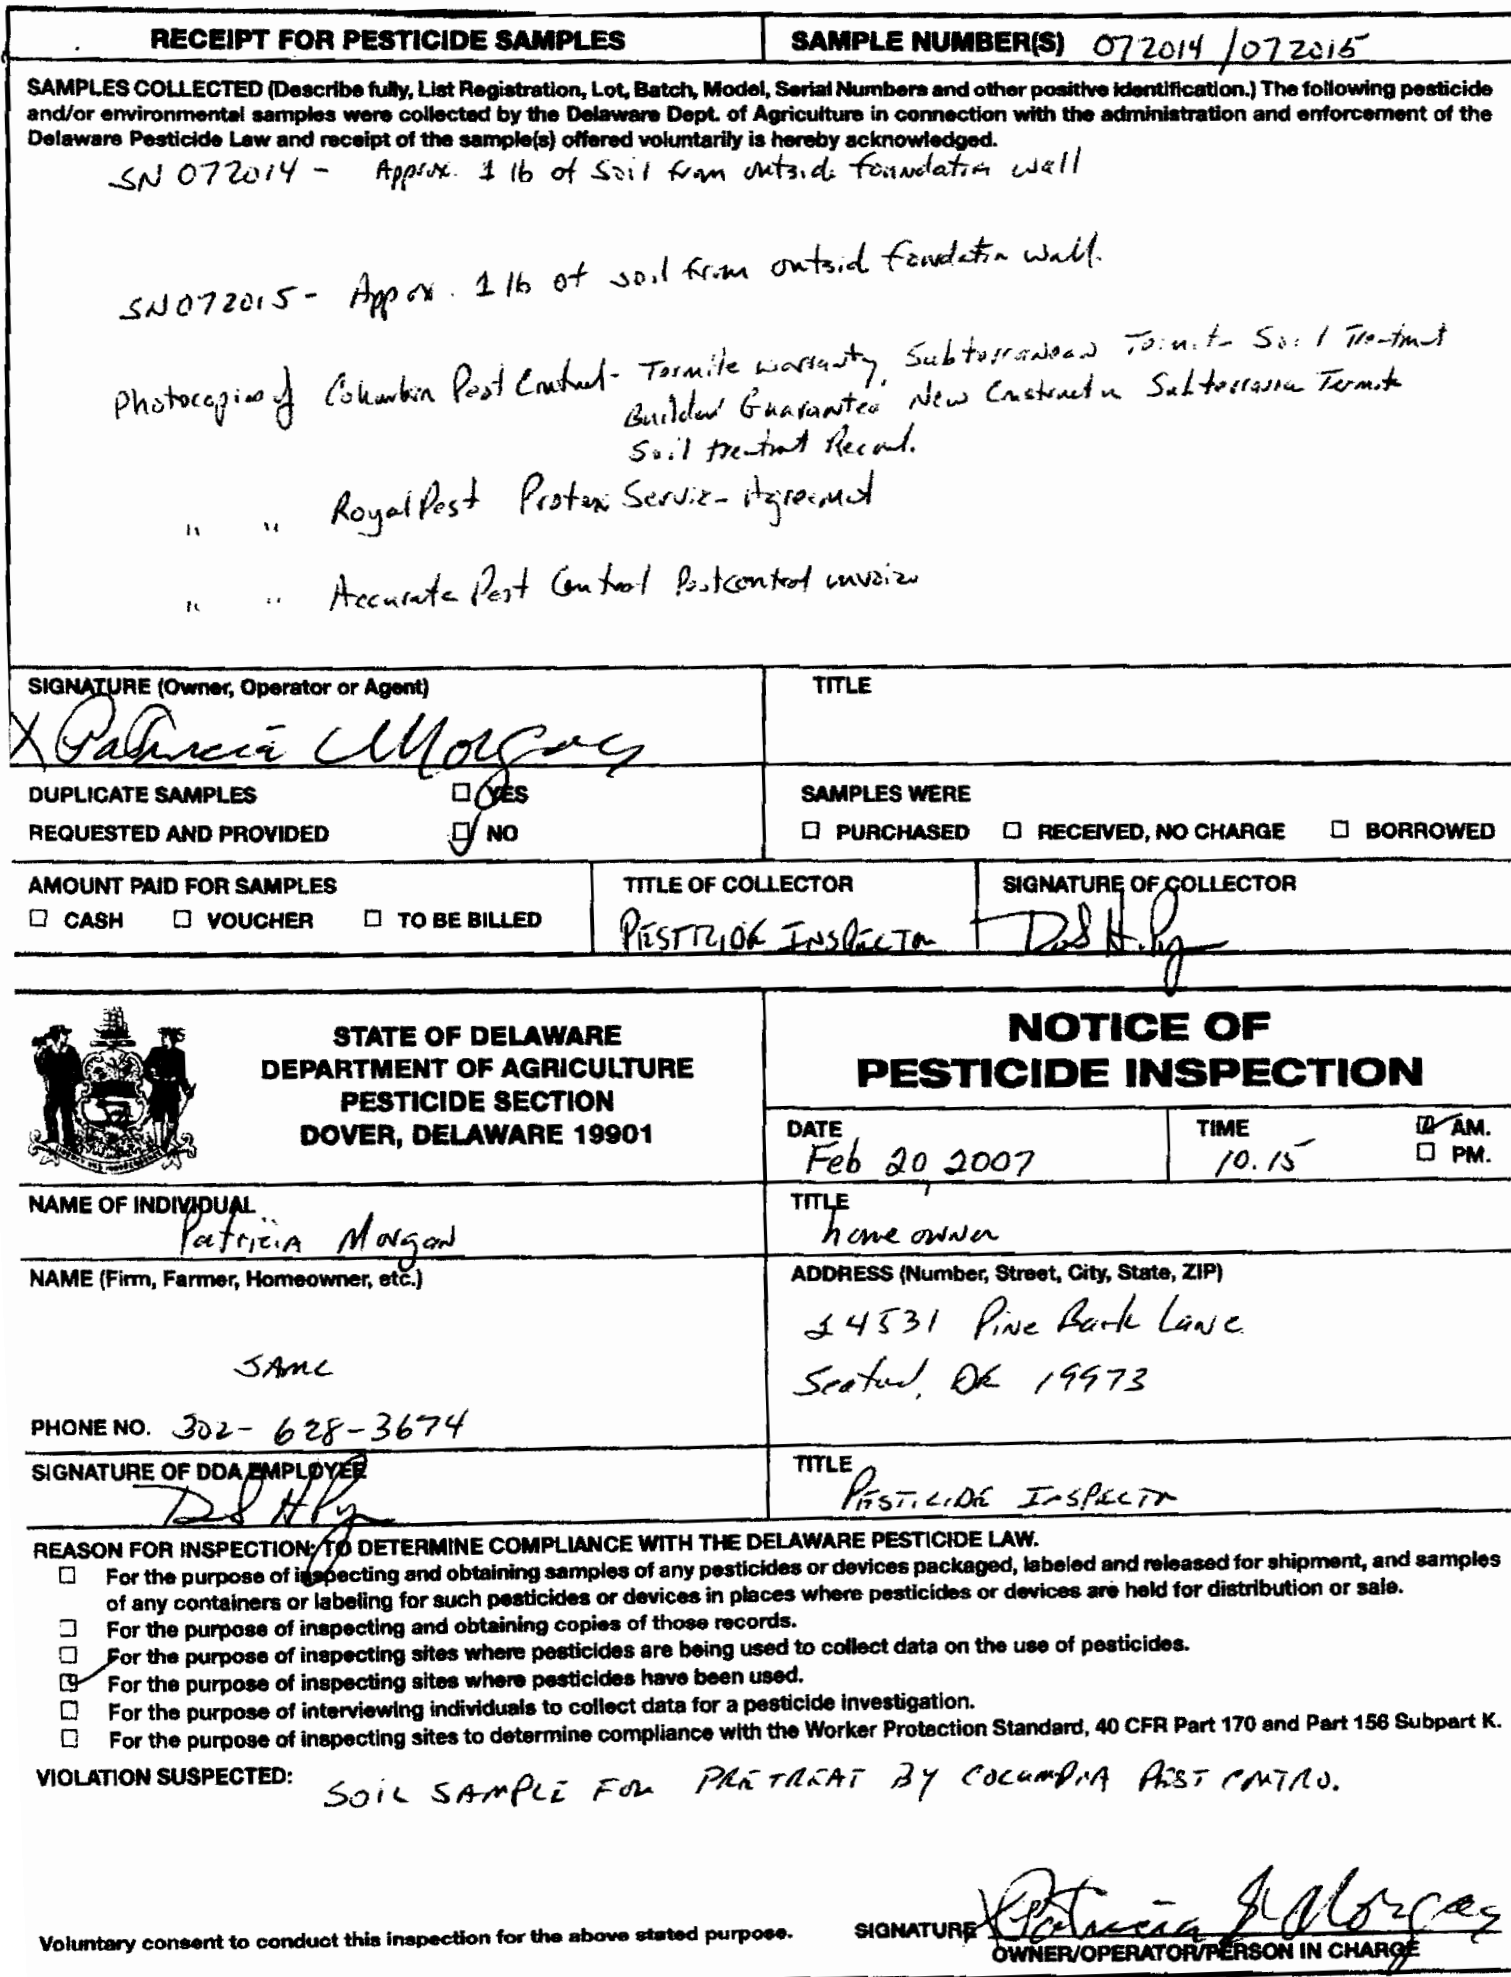 RECEIPT FOR PESTICIDE SAMPLES
SAMPLE NUMBER(S) 072014 / 072015
SAMPLES COLLECTED (Describe fully, List Registration, Lot, Batch, Model, Serial Numbers and other positive identification.) The following pesticide
and/or environmental samples were collected by the Delaware Dept. of Agriculture in connection with the administration and enforcement of the
Delaware Pesticide Law and receipt of the sample(s) offered voluntarily is hereby acknowledged.
SN 072014 - Approx. 1 lb of Soil from outside foundation wall
SN072015 - Approx. 1 lb of soil from outsid foundatin wall.
Photocopies of Columbia Pest Control - Termite warranty, Subterranean Termite Soil Treatment
Builders Guarantee New Construction Subterranean Termite
Soil treatment Record.
" " Royal Pest Service Agreement
" " Accurate Pest Control Pestcontrol invoice
SIGNATURE (Owner, Operator or Agent)
X Patricia Morgan
TITLE
DUPLICATE SAMPLES ☐ YES
REQUESTED AND PROVIDED ☐ NO
SAMPLES WERE
☐ PURCHASED ☐ RECEIVED, NO CHARGE ☐ BORROWED
AMOUNT PAID FOR SAMPLES
☐ CASH ☐ VOUCHER ☐ TO BE BILLED
TITLE OF COLLECTOR
PESTICIDE INSPECTOR
SIGNATURE OF COLLECTOR
STATE OF DELAWARE
DEPARTMENT OF AGRICULTURE
PESTICIDE SECTION
DOVER, DELAWARE 19901
NOTICE OF
PESTICIDE INSPECTION
DATE
Feb 20, 2007
TIME
10.15
☑ AM.
☐ PM.
NAME OF INDIVIDUAL
Patricia Morgan
TITLE
home owner
NAME (Firm, Farmer, Homeowner, etc.)
SAME
PHONE NO. 302-628-3674
ADDRESS (Number, Street, City, State, ZIP)
14531 Pine Bark Lane
Seaford, DE 19973
SIGNATURE OF DDA EMPLOYEE
TITLE
PESTICIDE INSPECTR
REASON FOR INSPECTION: TO DETERMINE COMPLIANCE WITH THE DELAWARE PESTICIDE LAW.
☐ For the purpose of inspecting and obtaining samples of any pesticides or devices packaged, labeled and released for shipment, and samples
of any containers or labeling for such pesticides or devices in places where pesticides or devices are held for distribution or sale.
☐ For the purpose of inspecting and obtaining copies of those records.
☐ For the purpose of inspecting sites where pesticides are being used to collect data on the use of pesticides.
☑ For the purpose of inspecting sites where pesticides have been used.
☐ For the purpose of interviewing individuals to collect data for a pesticide investigation.
☐ For the purpose of inspecting sites to determine compliance with the Worker Protection Standard, 40 CFR Part 170 and Part 156 Subpart K.
VIOLATION SUSPECTED: SOIL SAMPLE FOR PRETREAT BY COLUMBIA PEST CONTRO.
Voluntary consent to conduct this inspection for the above stated purpose.
SIGNATURE X Patricia J Morgan
OWNER/OPERATOR/PERSON IN CHARGE